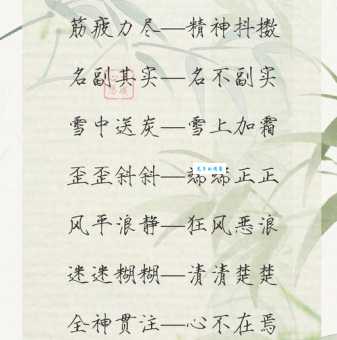 筋疲力尽—精神抖擞
名副其实—名不副实
雪中送炭—雪上加霜
歪歪斜斜—端端正正
风平浪静—狂风恶浪
迷迷糊糊—清清楚楚
全神贯注—心不在焉